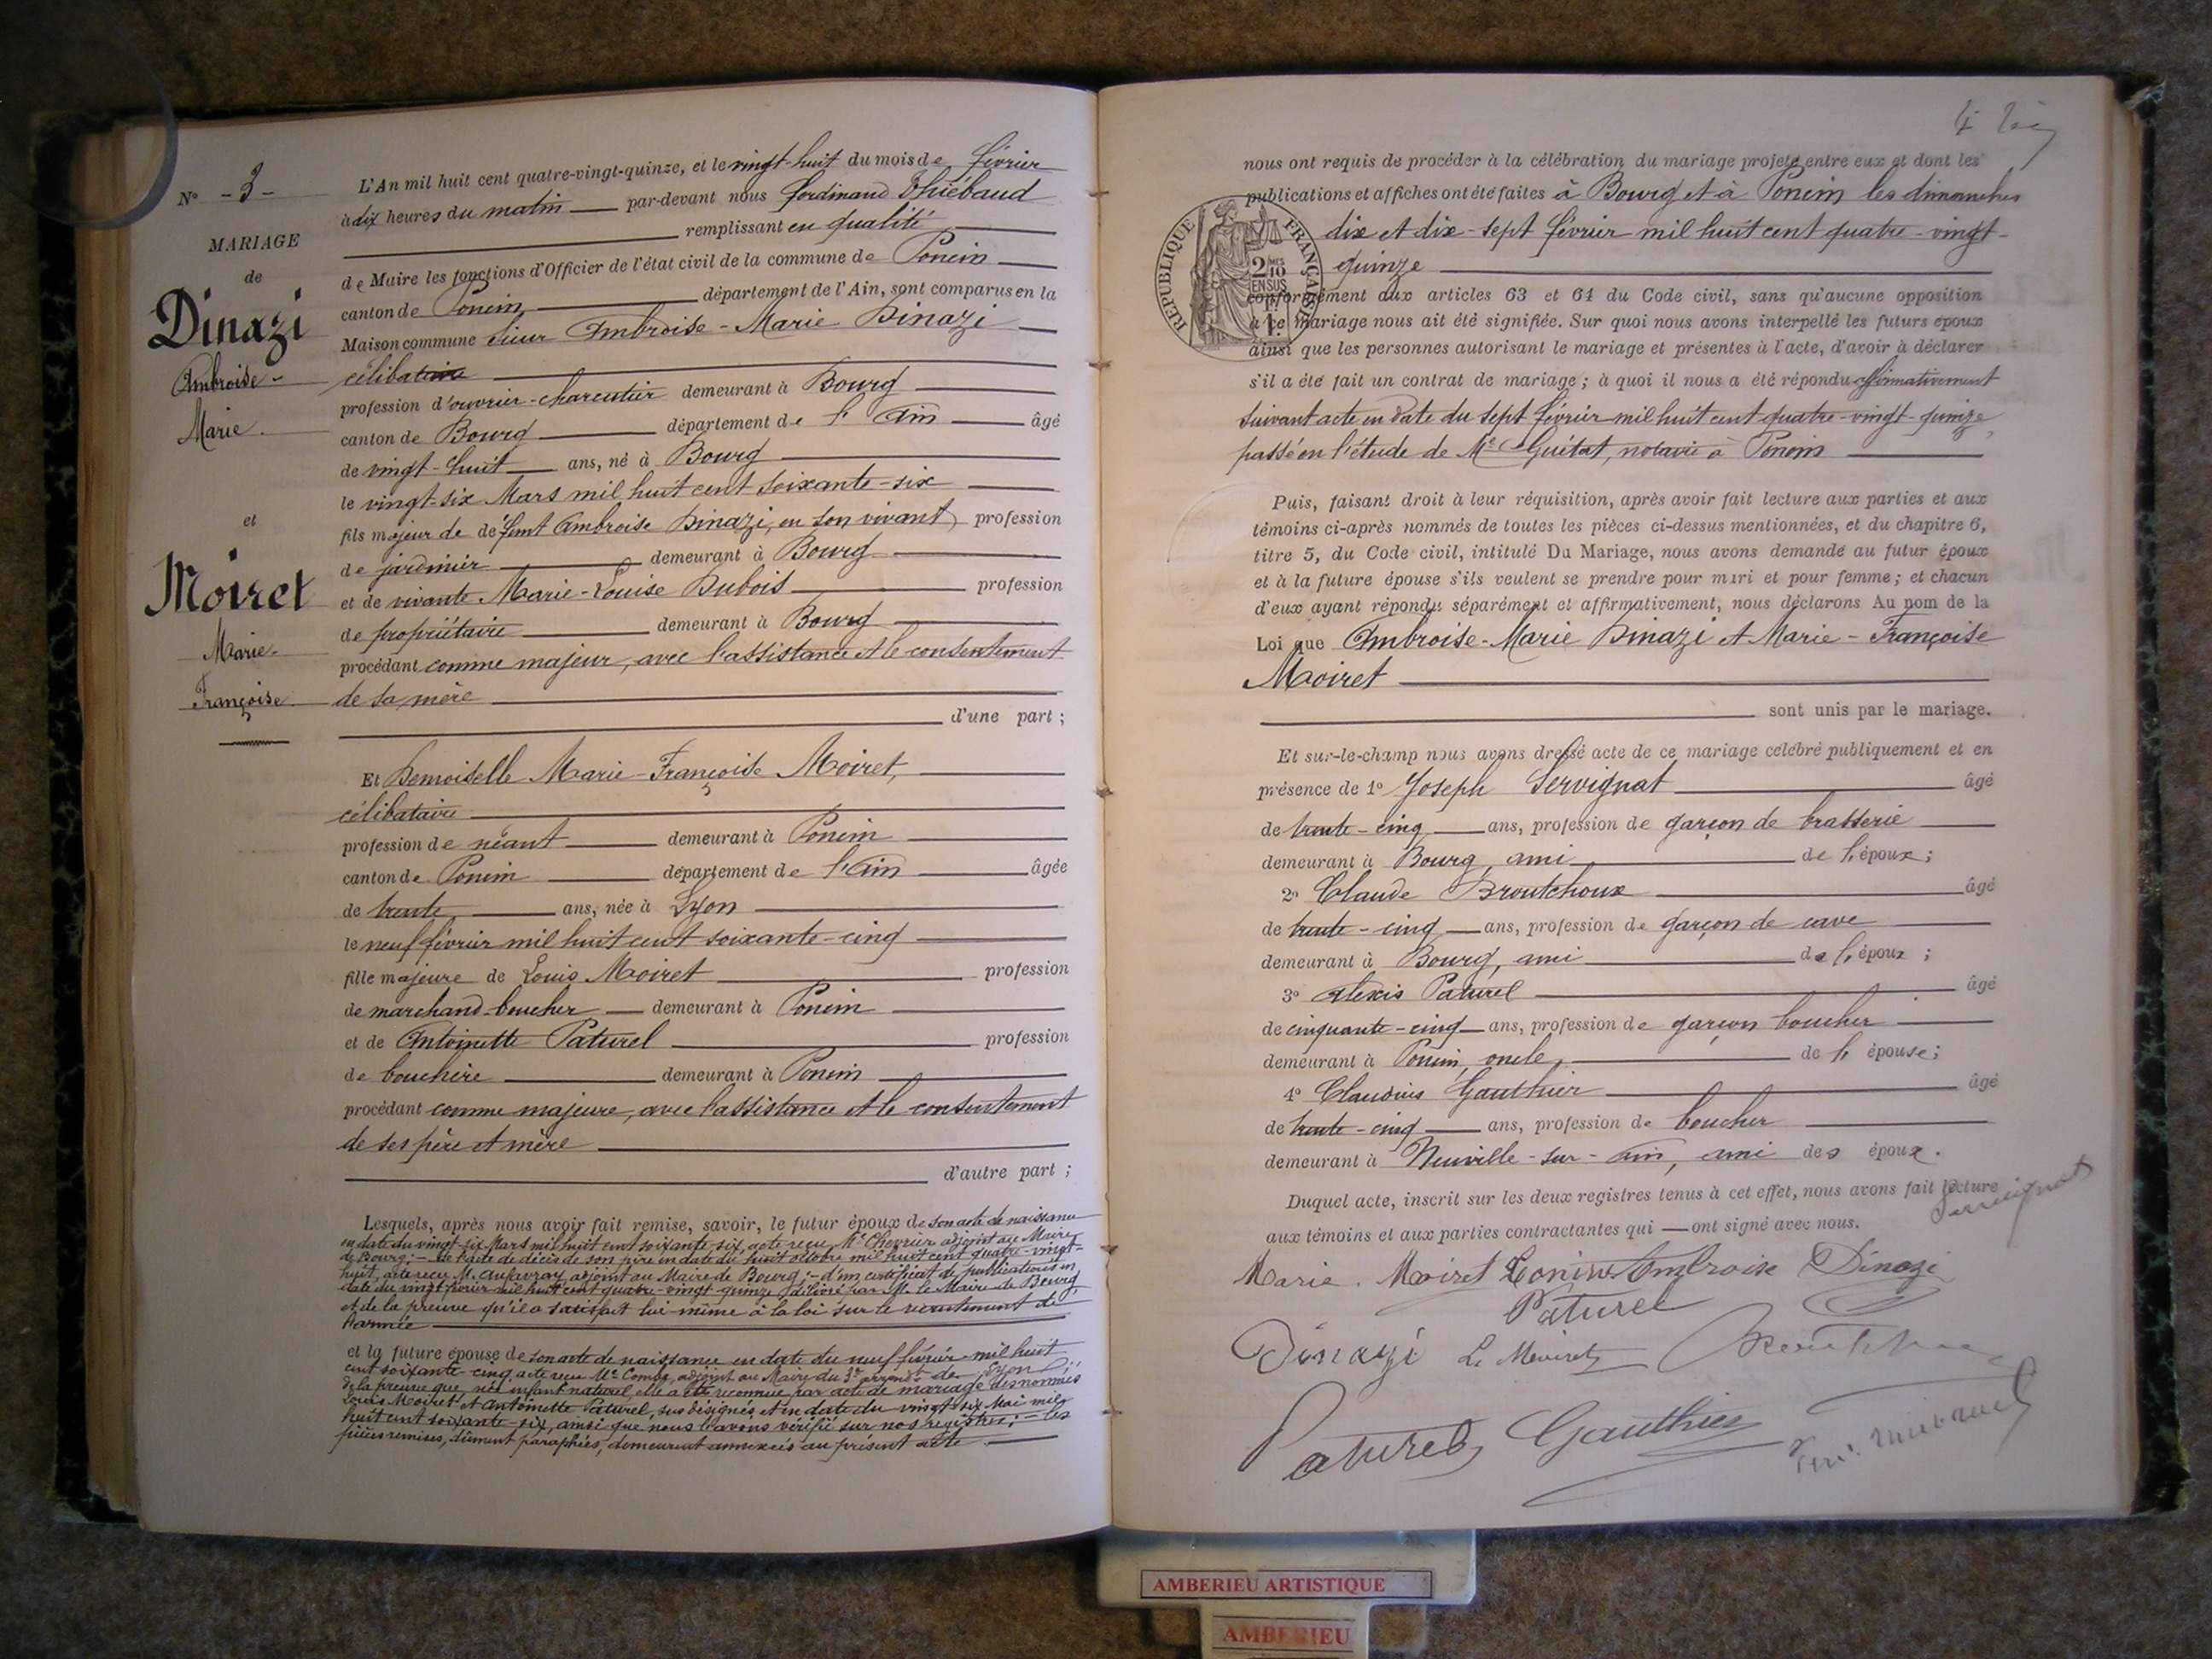 N° - 3 -
MARIAGE
de
Dinazi
Ambroise-
Marie.
et
Moiret
Marie-
Françoise
L'An mil huit cent quatre-vingt-quinze, et le vingt-huit du mois de février
à dix heures du matin par-devant nous Ferdinand Thiébaud
remplissant en qualité
de Maire les fonctions d'Officier de l'état civil de la commune de Poncin
canton de Poncin, département de l'Ain, sont comparus en la
Maison commune sieur Ambroise-Marie Dinazi
célibataire
profession d'ouvrier-charcutier demeurant à Bourg
canton de Bourg département de l'Ain âgé
de vingt-huit ans, né à Bourg
le vingt-six Mars mil huit cent soixante-six
fils majeur de défunt Ambroise Dinazi, en son vivant, profession
de jardinier demeurant à Bourg
et de vivante Marie-Louise Dubois profession
de propriétaire demeurant à Bourg
procédant comme majeur, avec l'assistance et le consentement
de sa mère
d'une part ;
Et Demoiselle Marie-Françoise Moiret,
célibataire
profession de néant demeurant à Poncin
canton de Poncin département de l'Ain âgée
de trente ans, née à Lyon
le neuf février mil huit cent soixante-cinq
fille majeure de Louis Moiret profession
de marchand-boucher demeurant à Poncin
et de Antoinette Paturel profession
de bouchère demeurant à Poncin
procédant comme majeure, avec l'assistance et le consentement
de ses père et mère
d'autre part ;
Lesquels, après nous avoir fait remise, savoir, le futur époux de son acte de naissance
en date du vingt-six Mars mil huit cent soixante-six, acte reçu Mr Chevrier adjoint au Maire
de Bourg ; - de l'acte de décès de son père en date du huit octobre mil huit cent quatre-vingt-
huit, acte reçu M. adjoint au Maire de Bourg ; - d'un certificat de publications en
date du vingt février mil huit cent quatre-vingt-quinze délivré par Mr le Maire de Bourg
et de la preuve qu'il a satisfait lui même à la loi sur le recrutement de
l'armée
et la future épouse de son acte de naissance en date du neuf février mil huit
cent soixante-cinq, acte reçu Mr Combe, adjoint au Maire du 3e arrondt de Lyon
de la preuve que née enfant naturel, elle a été reconnue par acte de mariage des nommés
Louis Moiret et Antoinette Paturel, sus désignés et en date du vingt-six Mai mil
huit cent soixante-six, ainsi que nous l'avons vérifié sur nos registres ; - les
pièces remises, dûment paraphées, demeurent annexées au présent acte.
nous ont requis de procéder à la célébration du mariage projeté entre eux et dont les
publications et affiches ont été faites à Bourg et à Poncin les dimanches
dix et dix-sept février mil huit cent quatre-vingt-
quinze
RÉPUBLIQUE FRANÇAISE
2 MES 10
EN SUS
conformément aux articles 63 et 64 du Code civil, sans qu'aucune opposition
à ce mariage nous ait été signifiée. Sur quoi nous avons interpellé les futurs époux
ainsi que les personnes autorisant le mariage et présentes à l'acte, d'avoir à déclarer
s'il a été fait un contrat de mariage ; à quoi il nous a été répondu affirmativement
suivant acte en date du sept février mil huit cent quatre-vingt-quinze,
passé en l'étude de Me Guétat, notaire à Poncin
Puis, faisant droit à leur réquisition, après avoir fait lecture aux parties et aux
témoins ci-après nommés de toutes les pièces ci-dessus mentionnées, et du chapitre 6,
titre 5, du Code civil, intitulé Du Mariage, nous avons demandé au futur époux
et à la future épouse s'ils veulent se prendre pour mari et pour femme ; et chacun
d'eux ayant répondu séparément et affirmativement, nous déclarons Au nom de la
Loi que Ambroise-Marie Dinazi et Marie-Françoise
Moiret
sont unis par le mariage.
Et sur-le-champ nous avons dressé acte de ce mariage célébré publiquement et en
présence de 1° Joseph Servignat âgé
de trente-cinq ans, profession de garçon de brasserie
demeurant à Bourg, ami de l'époux ;
2° Claude Broutchoux âgé
de trente-cinq ans, profession de garçon de cave
demeurant à Bourg, ami de l'époux ;
3° Alexis Paturel âgé
de cinquante-cinq ans, profession de garçon boucher
demeurant à Poncin, oncle, de l'épouse ;
4° Claudius Gauthier âgé
de trente-cinq ans, profession de boucher
demeurant à Neuville-sur-Ain, ami des époux.
Duquel acte, inscrit sur les deux registres tenus à cet effet, nous avons fait lecture
aux témoins et aux parties contractantes qui ont signé avec nous.
Servignat
Marie. Moiret Ambroise Dinazi
Paturel
Dinazi
Paturel Gauthier
AMBERIEU ARTISTIQUE
AMBERIEU